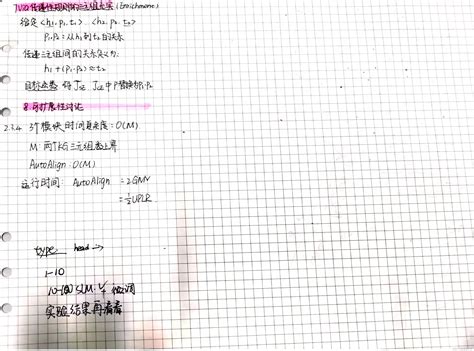 7.1.0 传递性规则的三元组丰富 (Enrichment)
给定 <h₁, p₁, t₁> <h₂, p₂, t₂>
p₁.p₂ : 从h₁到t₂的关系
传递三元组间的关系定义为:
h₁ + (p₁.p₂) ≈ t₂
目标函数 将 J_SE J_CE 中P替换为P₁.P₂
8 可扩展性讨论
2.3.4 3个模块时间复杂度: O(M)
M: 两个KG三元组数上界
AutoAlign: O(M)
运行时间: AutoAlign = 2GMN
= ½UPLR
type head →
1-10
10-100 SLM. 微调
实验结果再看看